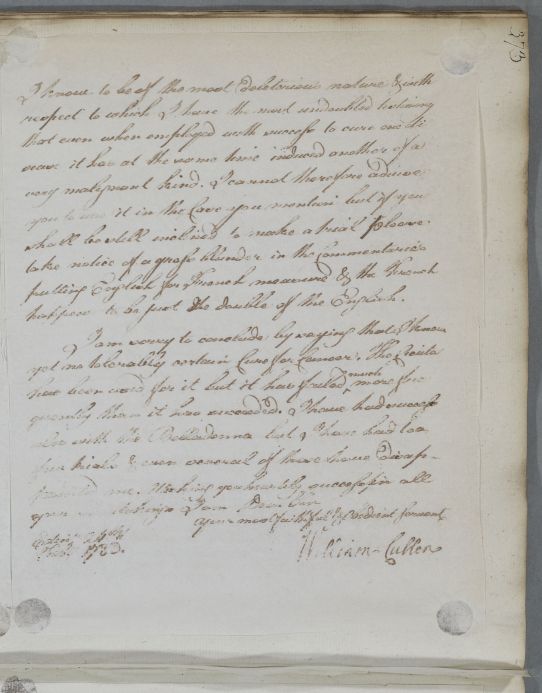 373
I know to be of the most deleterious nature & with
respect to which I have the most undoubted testimony
that even when employed with success to cure one di
sease it has at the same time induced another of a
very malignant kind. I cannot therefore advise
you to use it in the Case you mention but if you
shall be still inclined to make a trial please
take notice of a gross blunder in the Commentaries
putting English for French measure & the French
happens to be just the double of the English.
I am sorry to conclude by saying that I know
yet no tolerably certain Cure for Cancer. The Cicuta
has been used for it but it has failed much more fre
quently than it has succeeded. I have had success
also with the Belladonna but I have had too
few trials & even several of these have disap-
pointed me. Wishing you heartily success in all
your I am Dear Sir
your most faithful & obedient servant
William Cullen
Edinr 24th
Febr 1783.